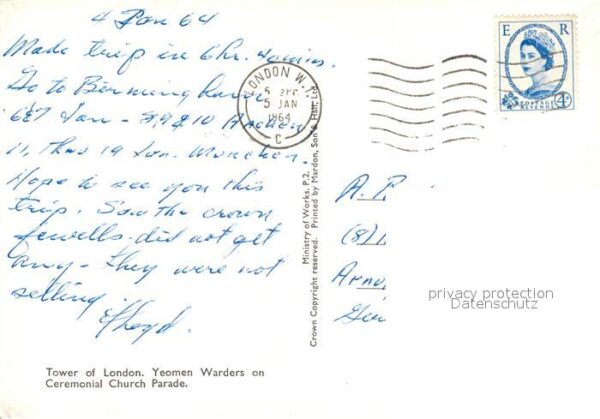 4 Jan 64
Made trip in 6 hr.
Go to Birmingham
6&7 Jan - 8, 9 & 10
11, thru 19 Jan. Munchen.
Hope to see you this
trip. Saw the crown
jewells - did not get
any - they were not
selling.
Lloyd.
Tower of London. Yeomen Warders on
Ceremonial Church Parade.
Ministry of Works. P.2.
Crown Copyright reserved. Printed by Mardon, Son & Hall, Ltd.
LONDON W.
5
5 JAN
1964
C
E R
POSTAGE
REVENUE
4D
A. P
(8)
Arno
Ge
privacy protection
Datenschutz